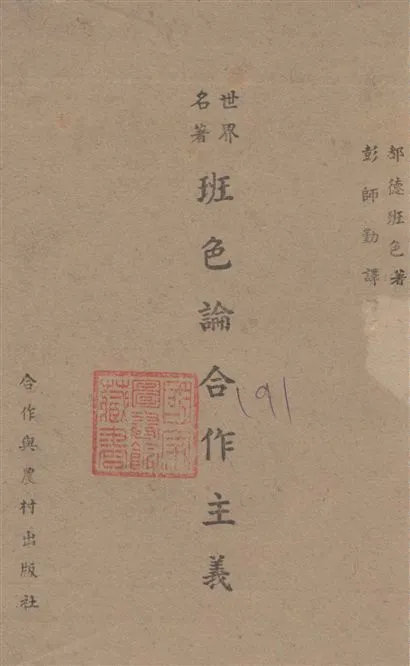 都德班色著
彭師勤譯
世界
名著
班色論合作主義
191
圖書館
藏書
合作與農村出版社